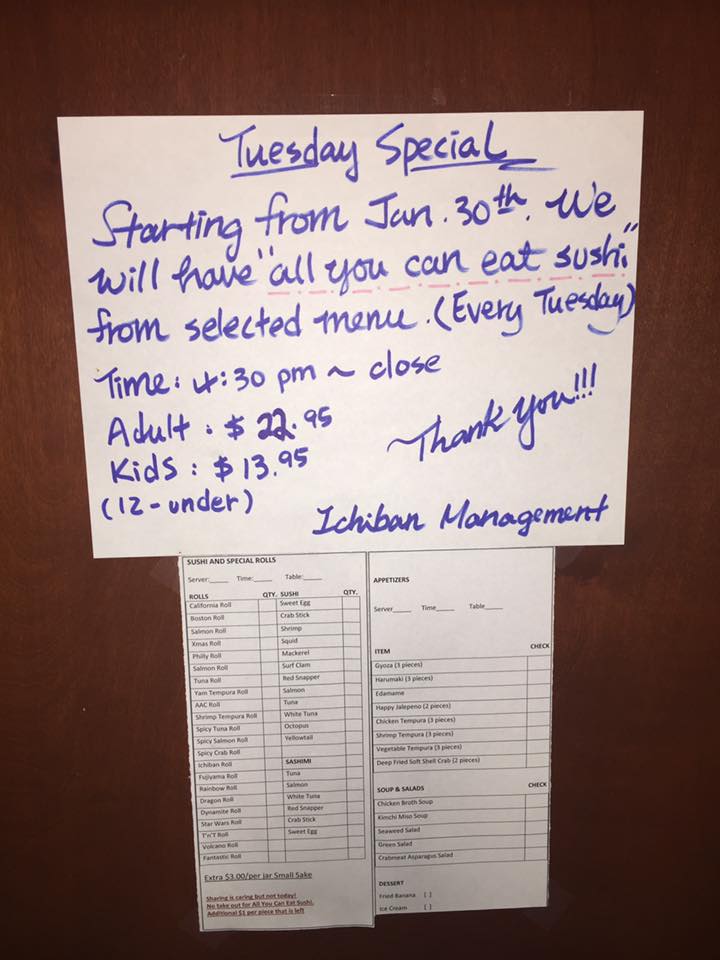 Tuesday Special
Starting from Jan. 30th. We
will have "all you can eat sushi"
from selected menu. (Every Tuesday)
Time: 4:30 pm ~ close
Adult : $ 22.95
Kids : $ 13.95
(12-under)
Thank you!!!
Ichiban Management
SUSHI AND SPECIAL ROLLS
Server:_____ Time:_____ Table:_____
ROLLS QTY. SUSHI QTY.
California Roll Sweet Egg
Boston Roll Crab Stick
Salmon Roll Shrimp
Xmas Roll Squid
Philly Roll Mackerel
Salmon Roll Surf Clam
Tuna Roll Red Snapper
Yam Tempura Roll Salmon
AAC Roll Tuna
Shrimp Tempura Roll White Tuna
Spicy Tuna Roll Octopus
Spicy Salmon Roll Yellowtail
Spicy Crab Roll
Ichiban Roll SASHIMI
Fujiyama Roll Tuna
Rainbow Roll Salmon
Dragon Roll White Tuna
Dynamite Roll Red Snapper
Star Wars Roll Crab Stick
T'n'T Roll Sweet Egg
Volcano Roll
Fantastic Roll
Extra $3.00/per jar Small Sake
Sharing is caring but not today!
No take out for All You Can Eat Sushi.
Additional $1 per piece that is left
APPETIZERS
Server_____ Time_____ Table_____
ITEM CHECK
Gyoza (3 pieces)
Harumaki (3 pieces)
Edamame
Happy Jalepeno (2 pieces)
Chicken Tempura (3 pieces)
Shrimp Tempura (3 pieces)
Vegetable Tempura (3 pieces)
Deep Fried Soft Shell Crab (2 pieces)
SOUP & SALADS CHECK
Chicken Broth Soup
Kimchi Miso Soup
Seaweed Salad
Green Salad
Crabmeat Asparagus Salad
DESSERT
Fried Banana [ ]
Ice Cream [ ]